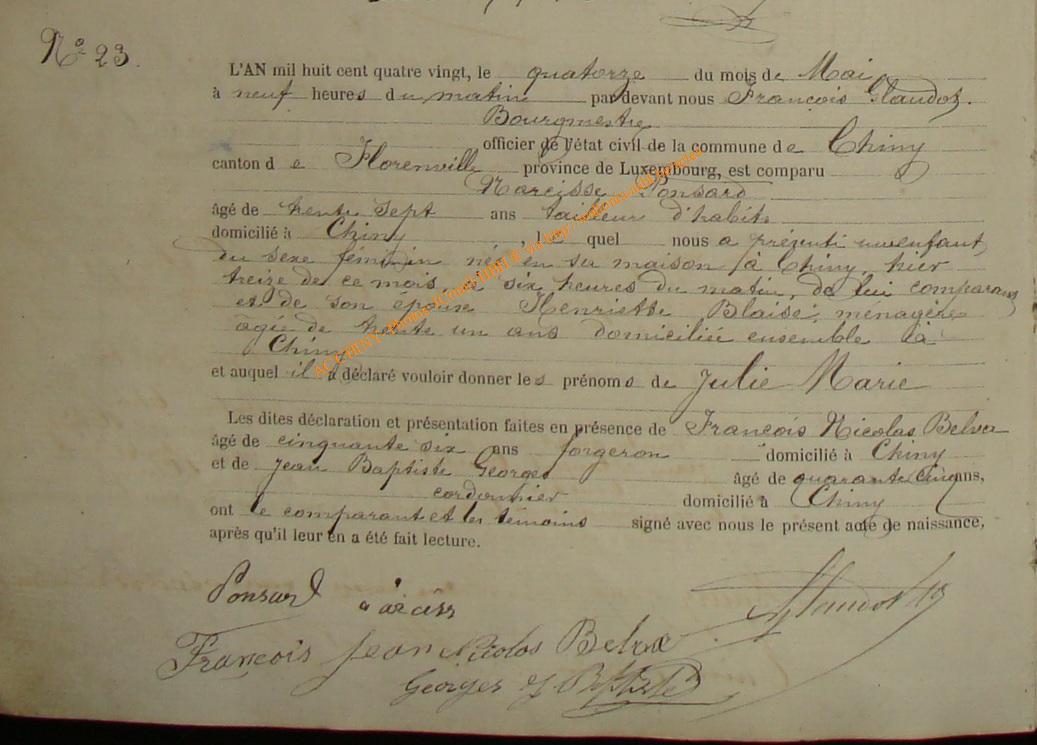 N° 23.
L'AN mil huit cent quatre vingt, le quatorze du mois de Mai
à neuf heures du matin par devant nous François Glaudot.
Bourgmestre
officier de l'état civil de la commune de Chiny
canton de Florenville province de Luxembourg, est comparu
Narcisse Ponsard
âgé de trente sept ans tailleur d'habits
domicilié à Chiny lequel nous a présenté un enfant
du sexe féminin né en sa maison à Chiny, hier
treize de ce mois, à six heures du matin, de lui comparant
et de son épouse Henriette Blaise, ménagère
âgée de trente un ans domiciliée ensemble à
Chiny
et auquel il a déclaré vouloir donner les prénoms de Julie Marie
Les dites déclaration et présentation faites en présence de François Nicolas Belva
âgé de cinquante six ans forgeron domicilié à Chiny
et de Jean Baptiste Georges âgé de quarante cinq ans,
cordonnier domicilié à Chiny
ont le comparant et les témoins signé avec nous le présent acte de naissance,
après qu'il leur en a été fait lecture.
Ponsard
Glaudot
François Jean Nicolas
Georges J Bptste